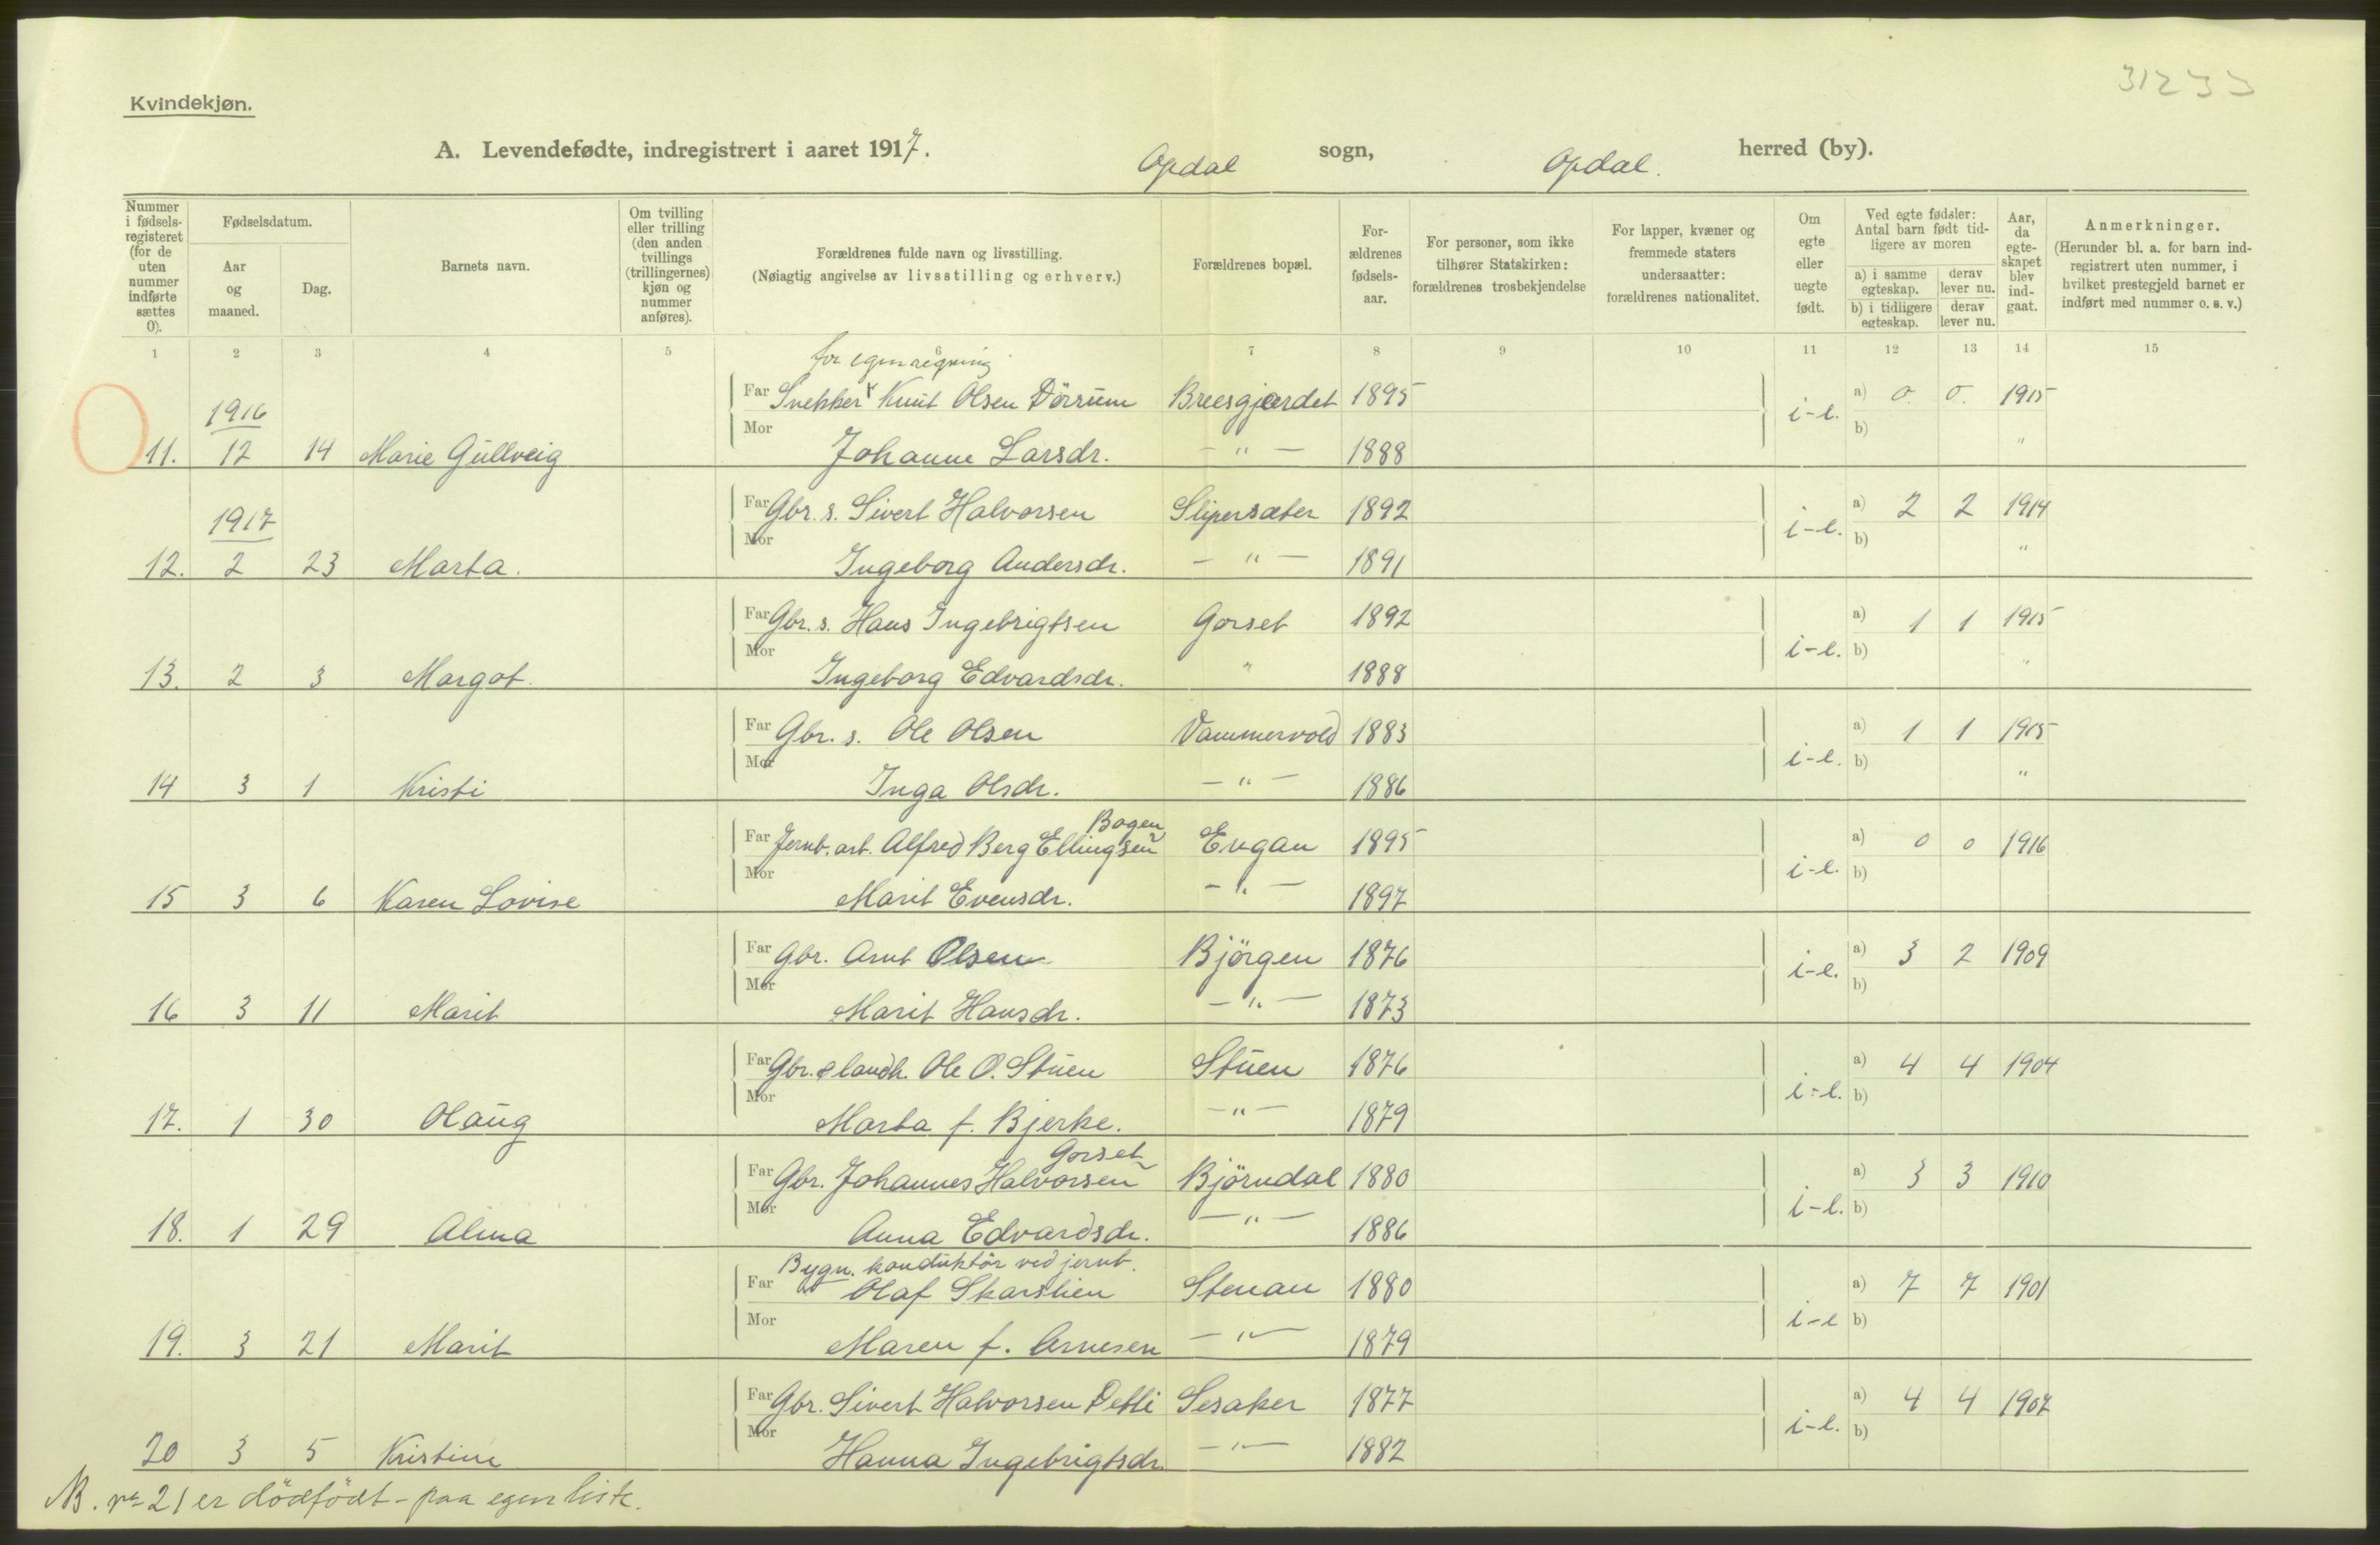 31233
Kvindekjøn.
A. Levendefødte, indregistrert i aaret 1917. Opdal sogn, Opdal. herred (by).
Nummer i fødsels-registeret (for de uten nummer indførte sættes 0).
Fødselsdatum.
Aar og maaned.
Dag.
Barnets navn.
Om tvilling eller trilling (den anden tvillings (trillingernes) kjøn og nummer anføres).
Forældrenes fulde navn og livsstilling.
(Nøiagtig angivelse av livsstilling og erhverv.)
Forældrenes bopæl.
For-ældrenes fødsels-aar.
For personer, som ikke tilhører Statskirken: forældrenes trosbekjendelse
For lapper, kvæner og fremmede staters undersaatter: forældrenes nationalitet.
Om egte eller uegte født.
Ved egte fødsler: Antal barn født tid-ligere av moren
a) i samme egteskap.
derav lever nu.
b) i tidligere egteskap.
derav lever nu.
Aar, da egte-skapet blev ind-gaat.
Anmerkninger.
(Herunder bl. a. for barn ind-registrert uten nummer, i hvilket prestegjeld barnet er indført med nummer o. s. v.)
1 2 3 4 5 6 7 8 9 10 11 12 13 14 15
for egen regning
Far Snekker Knut Olsen Dörrum Breesgjærdet 1895 a) 0. 0. 1915
1916 Mor i-e. b)
11. 12 14 Marie Gullveig Johanne Larsdr. - " - 1888 "
Far Gbr. s. Sivert Halvorsen Slipersæter 1892 a) 2 2 1914
1917 Mor i-e. b)
12. 2 23 Marta. Ingeborg Andersdr. - " - 1891 "
Far Gbr. s. Hans Ingebrigtsen Gorset 1892 a) 1 1 1915
Mor i-e. b)
13. 2 3 Margot. Ingeborg Edvardsdr. " 1888 "
Far Gbr. s. Ole Olsen Vammervold 1883 a) 1 1 1915
Mor i-e. b)
14 3 1 Kristi Inga Olsdr. - " - 1886 "
Bogen
Far Jernb. arb. Alfred Berg Ellingsen Engan 1895 a) 0 0 1916
Mor i-e. b)
15 3 6 Karen Lovise Marit Evensdr. - " - 1897
Far Gbr. Arnt Olsen Björgen 1876 a) 3 2 1909
Mor i-e. b)
16 3 11 Marit Marit Hansdr. - " - 1873
Far Gbr. & landh. Ole O. Stuen Stuen 1876 a) 4 4 1904
Mor i-e. b)
17. 1 30 Olaug Marta f. Bjerke. - " - 1879
Gorset
Far Gbr. Johannes Halvorsen Björndal 1880 a) 3 3 1910
Mor i-e. b)
18. 1 29 Alma Anna Edvardsdr. - " - 1886
Bygn. konduktör ved jernb.
Far Olaf Skarslien Stenan 1880 a) 7 7 1901
Mor i-e b)
19. 3 21 Marit Maren f. Arnesen - " - 1879
Far Gbr. Sivert Halvorsen Detli Sesaker 1877 a) 4 4 1907
Mor i-e. b)
20 3 5 Kristine Hanna Ingebrigtsdr. - " - 1882
NB. nr 21 er dödfödt - paa egen liste.